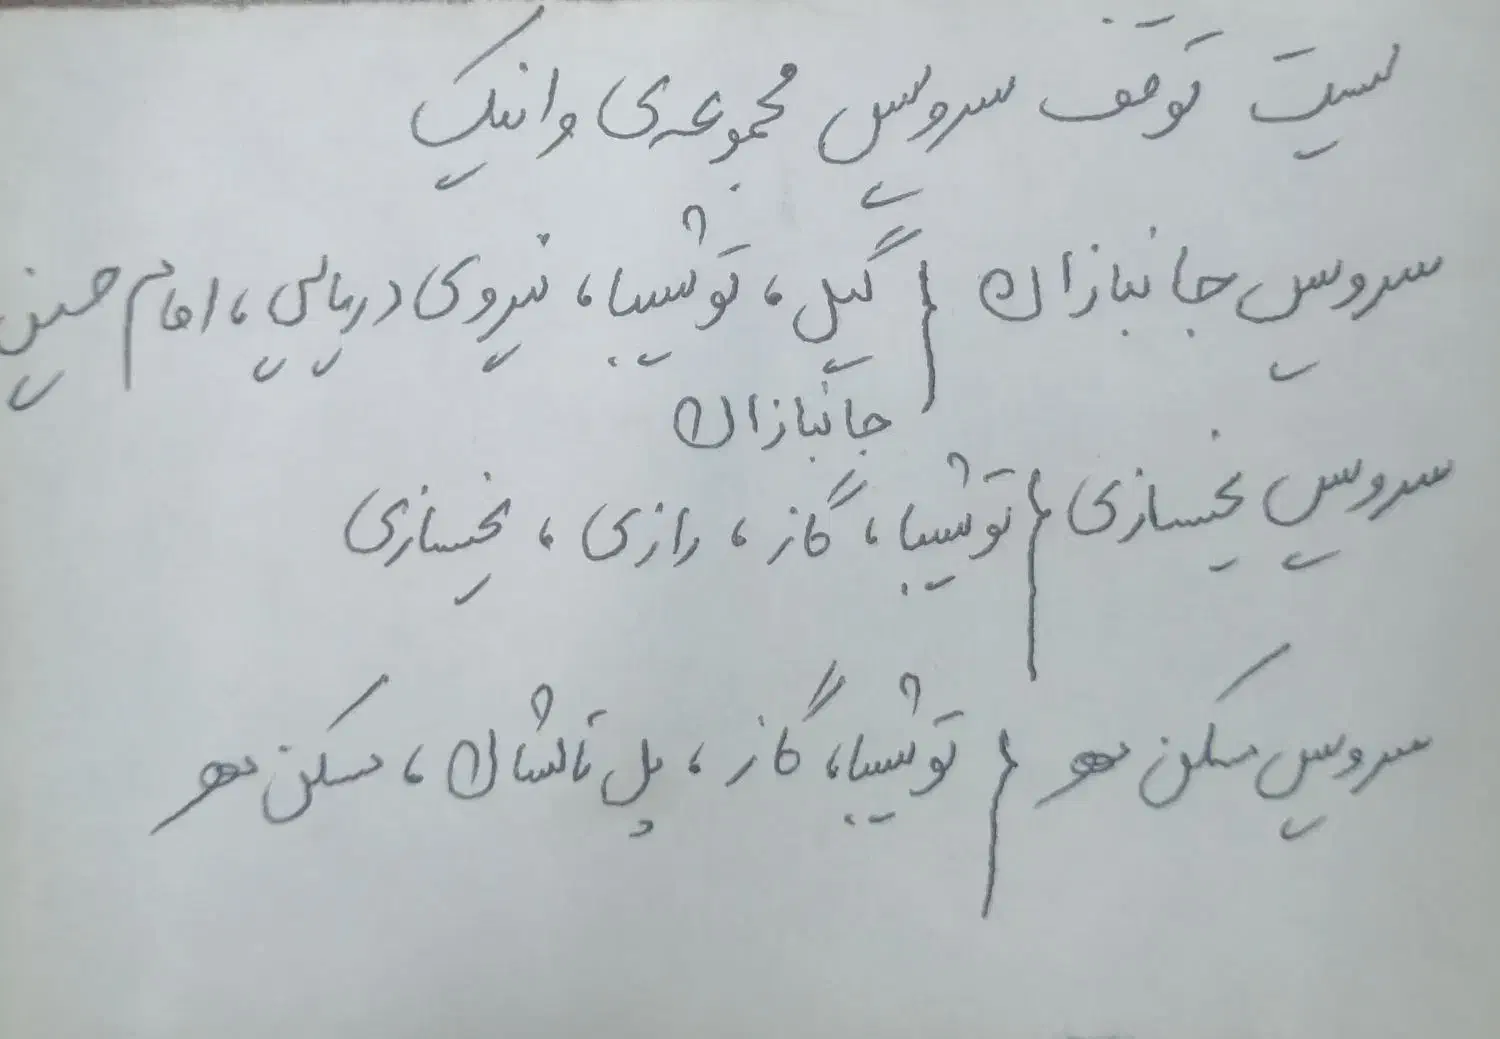 لیست توقف سرویس مجموعه‌ی وانیک
سرویس جانبازان { گیل، توشیبا، نیروی دریایی، امام حسین
جانبازان
سرویس یخسازی { توشیبا، گاز، رازی، یخسازی
سرویس مسکن مهر { توشیبا، گاز، پل تالشان، مسکن مهر